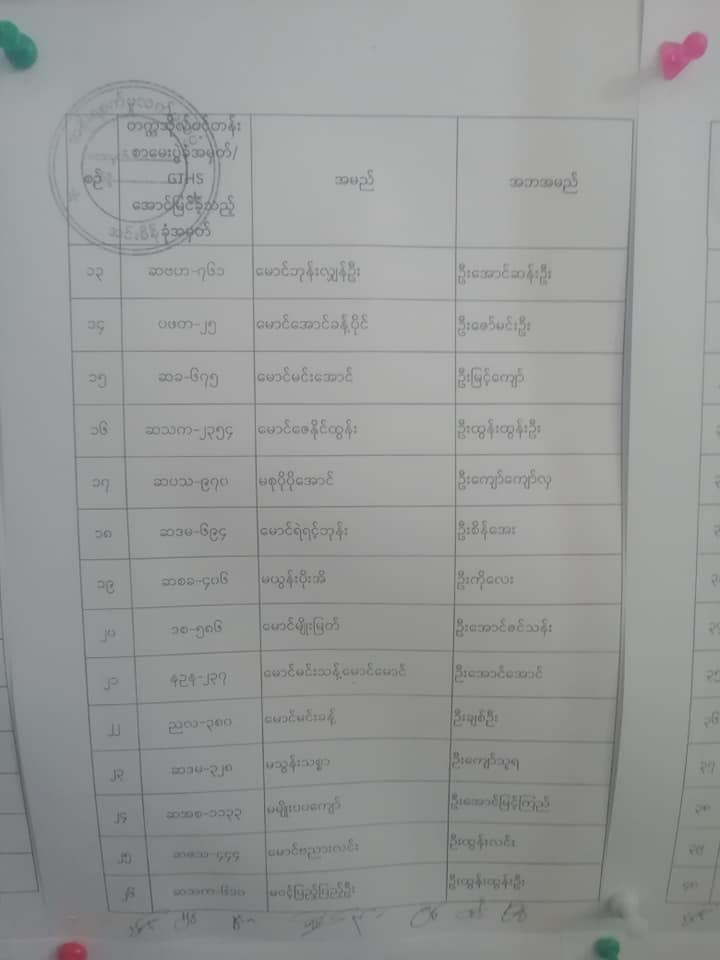 တက္ကသိုလ်ဝင်တန်း
စာမေးပွဲခုံအမှတ်/
စဉ် GTHS အမည် အဘအမည်
အောင်မြင်ခဲ့သည့်
ခုံအမှတ်
၁၃ ဆဗဟ-၇၆၁ မောင်ဘုန်းလျှန်ဦး ဦးအောင်ဆန်းဦး
၁၄ ပဖတ-၂၅ မောင်အောင်ခန့်ပိုင် ဦးဇော်မင်းဦး
၁၅ ဆခ-၆၇၅ မောင်မင်းအောင် ဦးမြင့်ကျော်
၁၆ ဆသက-၂၃၅၄ မောင်ဇေနိုင်ထွန်း ဦးထွန်းထွန်းဦး
၁၇ ဆပသ-၉၇၀ မစုပိုပိုအောင် ဦးကျော်ကျော်လှ
၁၈ ဆဒမ-၆၉၄ မောင်ရဲရင့်ဘုန်း ဦးစိန်အေး
၁၉ ဆစခ-၄၀၆ မယွန်းပိုးအိ ဦးကိုလေး
၂၀ ၁စ-၅၈၆ မောင်မျိုးမြတ် ဦးအောင်ခင်သန်း
၂၁ မောင်မင်းသန့်မောင်မောင် ဦးအောင်အောင်
၂၂ ညလ-၃၈၀ မောင်မင်းခန့် ဦးချစ်ဦး
၂၃ ဆဒမ-၃၂၈ မသွန်းသစ္စာ ဦးကျော်သူရ
၂၄ ဆအစ-၁၁၃၃ မမျိုးပပကျော် ဦးအောင်မြင့်ကြည်
၂၅ ဆဇသ-၄၄၄ မောင်ဗညားလင်း ဦးထွန်းလင်း
၂၆ ဆသက-၆၁၀ မဝင့်ပြည့်ပြည့်ဦး ဦးထွန်းထွန်းဦး
၃၆
၃၇
၃၈
၃၉
၄၀